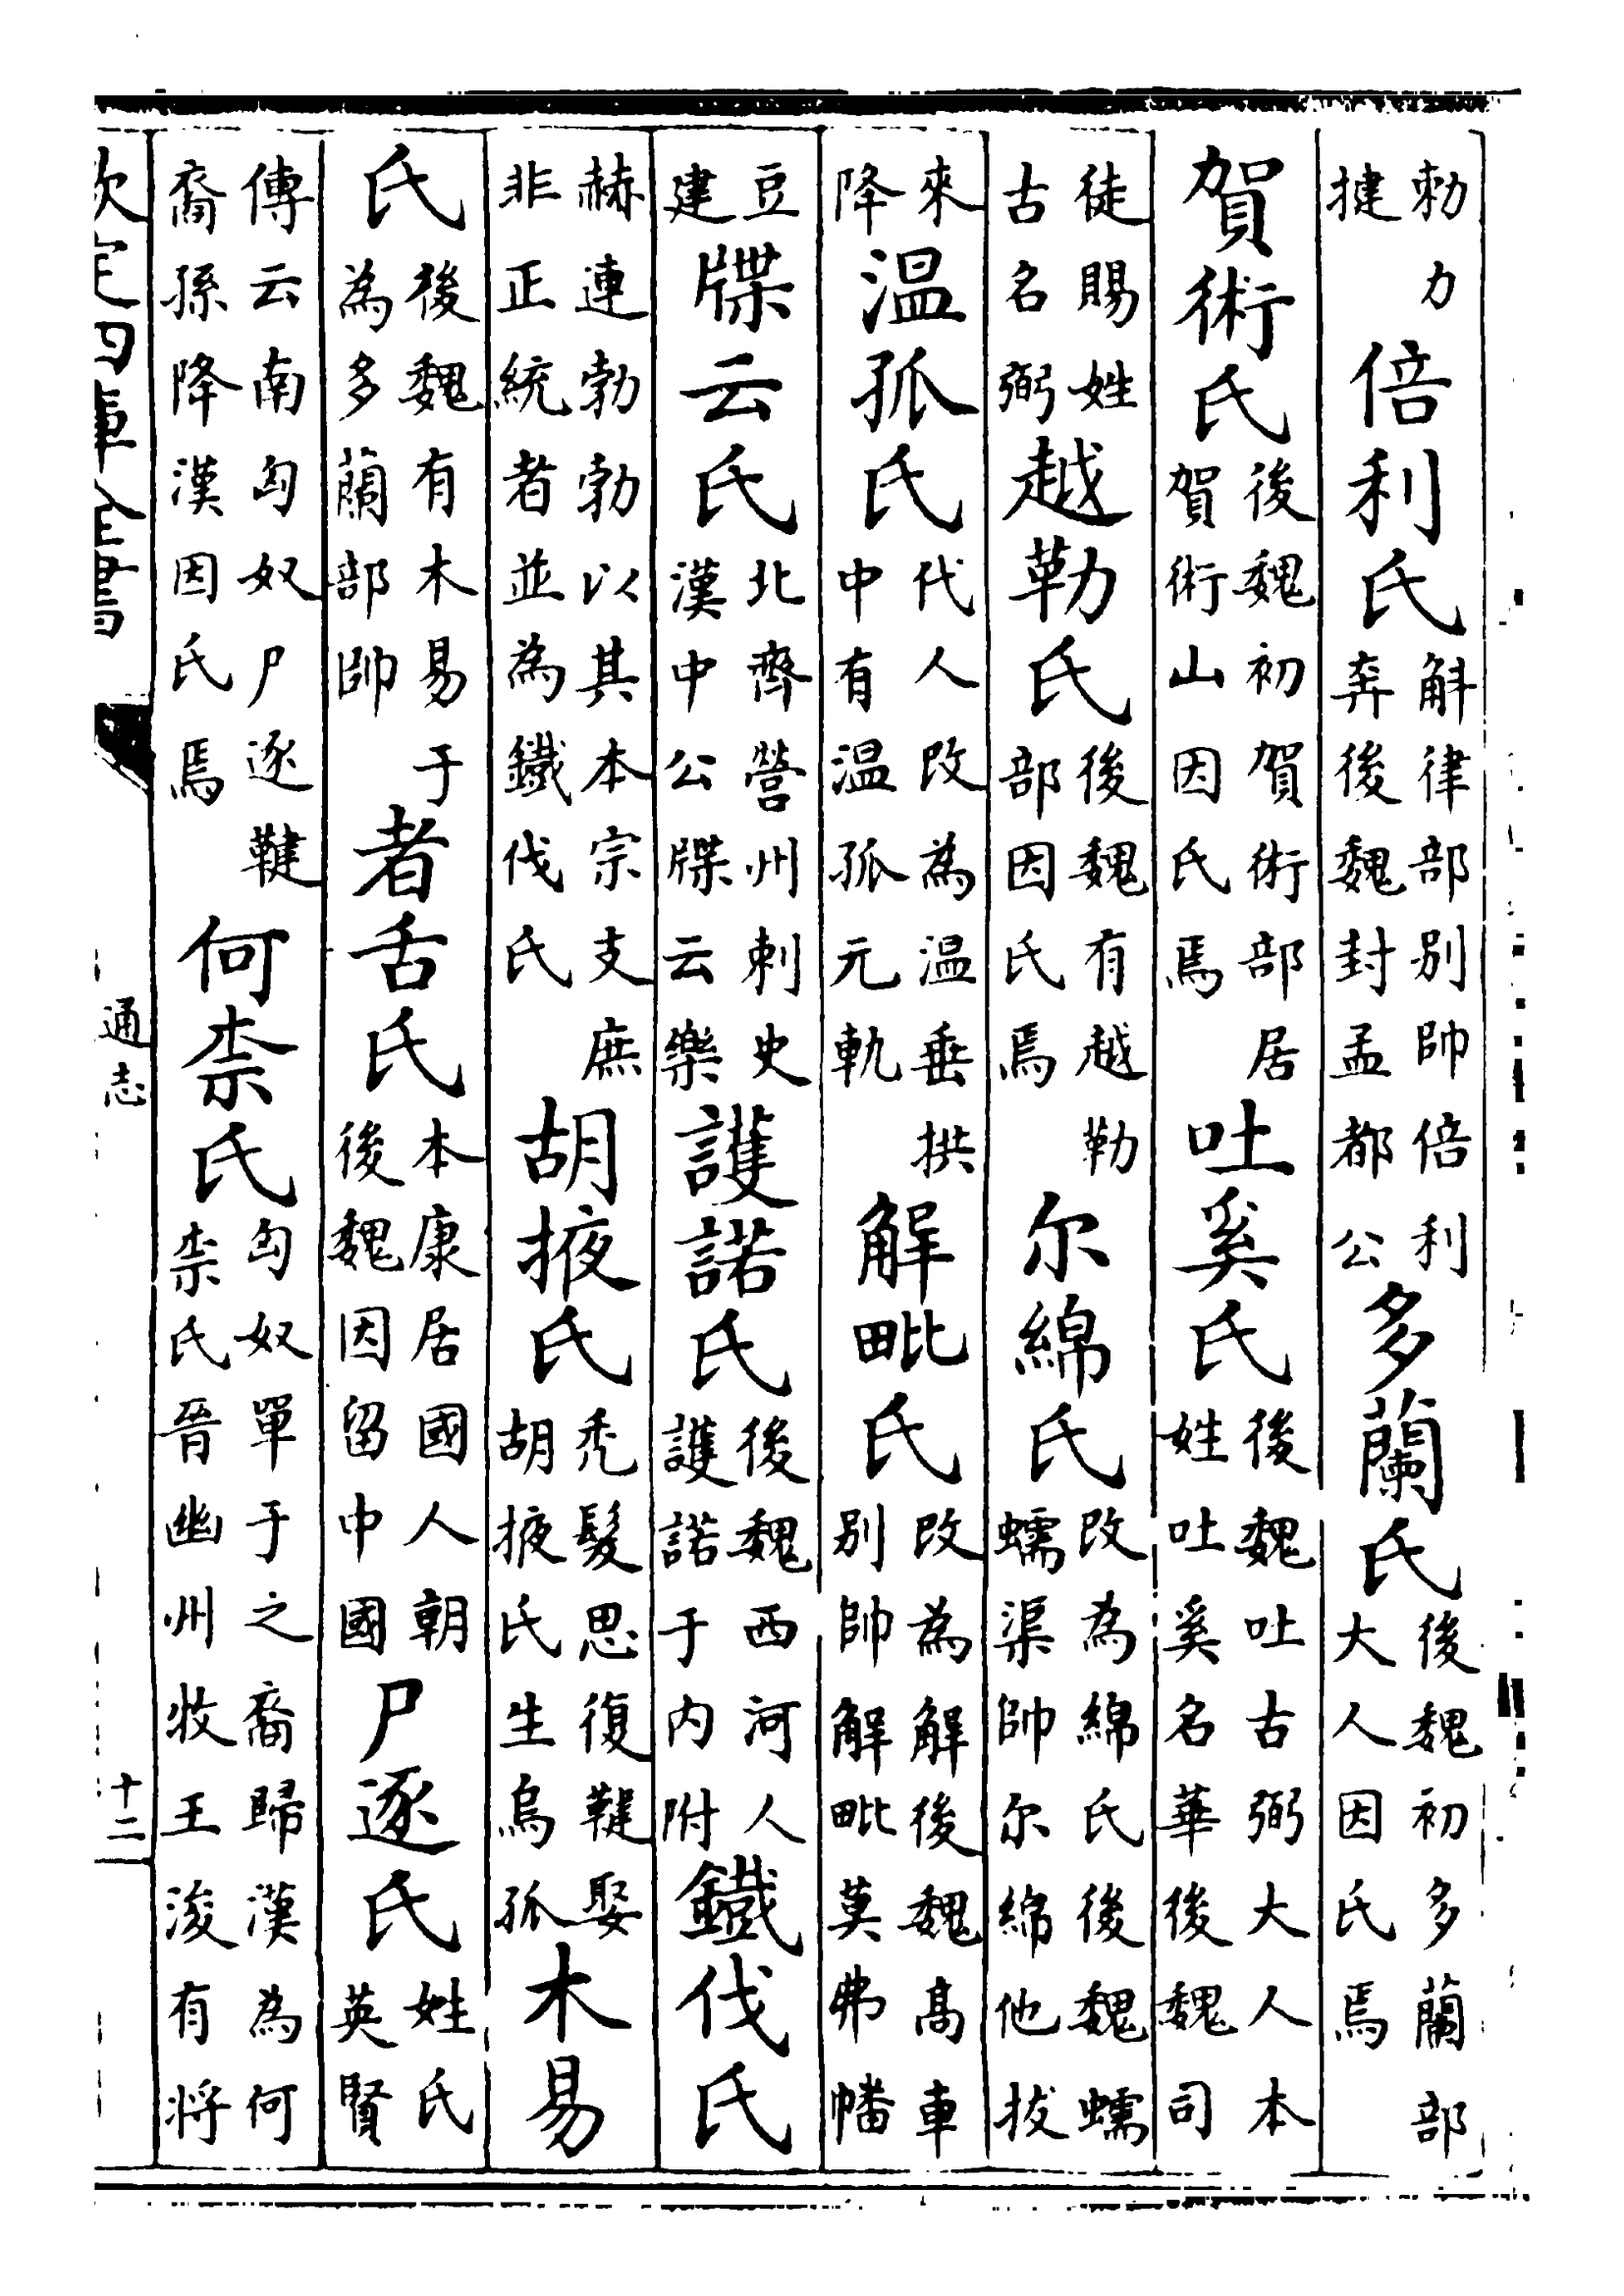 勑力揵倍利氏斛律部别帥倍利奔後魏封孟都公多蘭氏後魏初多蘭部大人因氏焉
賀術氏後魏初賀術部居賀術山因氏焉吐奚氏後魏吐古弼大人本姓吐奚名華後魏司
徒賜姓古名弼越勒氏後魏有越勒部因氏焉尔綿氏改為綿氏後魏蠕蠕渠帥尔綿他拔
來降温孤氏代人改為温垂拱中有温孤元軌解毗氏改為解後魏髙車别帥解毗莫弗幡
豆建牒云氏北齊營州刺史漢中公牒云樂護諾氏後魏西河人護諾于内附鐵伐氏
赫連勃勃以其本宗支庶非正統者並為鐵伐氏胡掖氏秃髮思復鞬娶胡掖氏生烏孤木易
氏後魏有木易于為多蘭部帥者舌氏本康居國人朝後魏因留中國尸逐氏姓氏英賢
傳云南匈奴尸逐鞬裔孫降漢因氏焉何柰氏匈奴單于之裔歸漢為何柰氏晉幽州牧王浚有将
欽定四庫全書
通志
十二